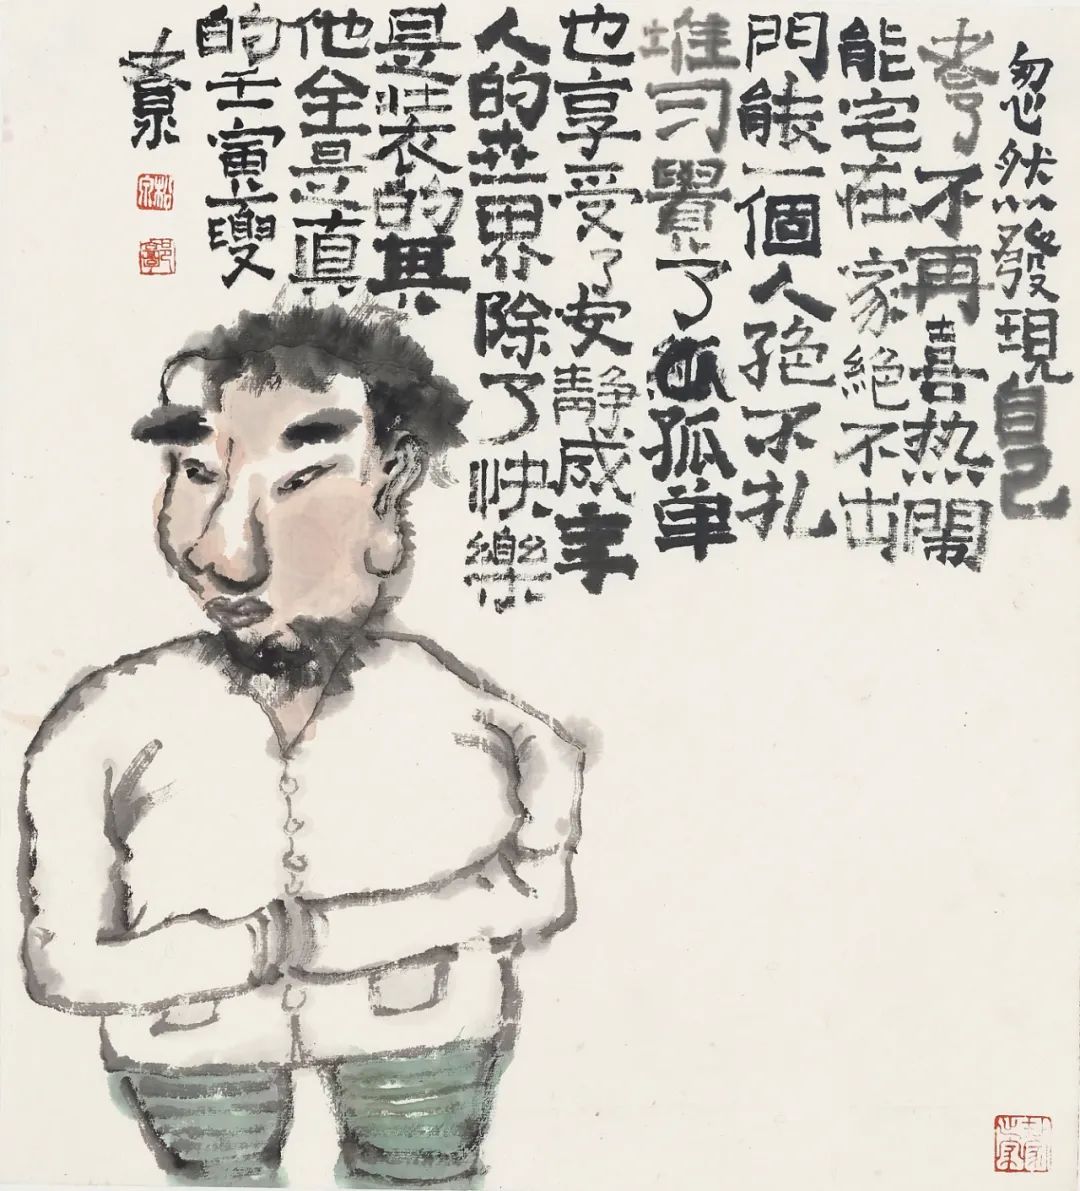 忽然發現自己
老了不再喜热闹
能宅在家絕不出
門能一個人絕不扎
堆习覺了孤單
也享受了安静成年
人的世界除了快樂
是装的其
他全是真
的壬寅